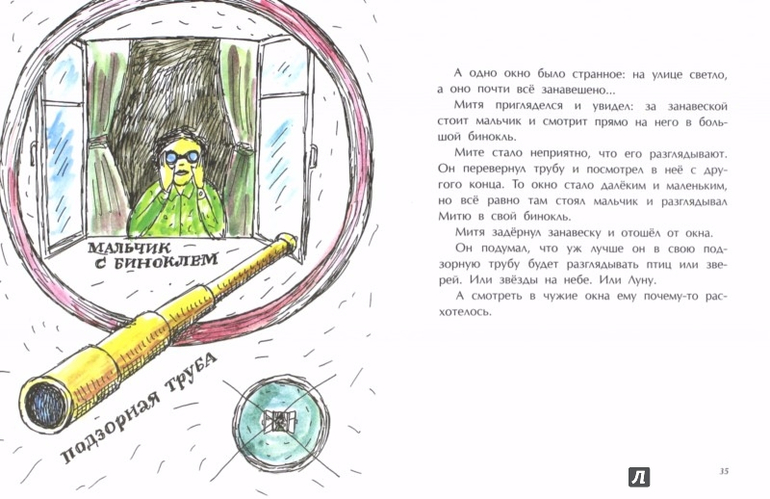 МАЛЬЧИК
С БИНОКЛЕМ
ПОДЗОРНАЯ ТРУБА
А одно окно было странное: на улице светло,
а оно почти всё занавешено...
Митя пригляделся и увидел: за занавеской
стоит мальчик и смотрит прямо на него в боль-
шой бинокль.
Мите стало неприятно, что его разглядывают.
Он перевернул трубу и посмотрел в неё с дру-
гого конца. То окно стало далёким и маленьким,
но всё равно там стоял мальчик и разглядывал
Митю в свой бинокль.
Митя задёрнул занавеску и отошёл от окна.
Он подумал, что уж лучше он в свою под-
зорную трубу будет разглядывать птиц или зве-
рей. Или звёзды на небе. Или Луну.
А смотреть в чужие окна ему почему-то рас-
хотелось.
Л
35